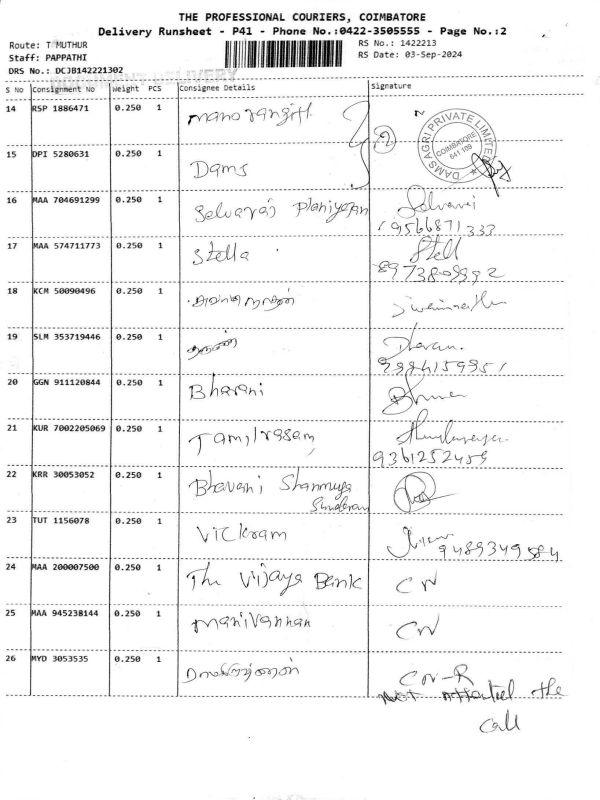 THE PROFESSIONAL COURIERS, COIMBATORE
Delivery Runsheet - P41 - Phone No.:0422-3505555 - Page No.:2
Route: T MUTHUR
RS No.: 1422213
Staff: PAPPATHI
RS Date: 03-Sep-2024
DRS No.: DCJB142221302
S No Consignment No Weight PCS Consignee Details Signature
14 RSP 1886471 0.250 1 Manoranjith
DAMS AGRI PRIVATE LIMITED
COIMBATORE
641 109
15 DPI 5280631 0.250 1 Dams
16 MAA 704691299 0.250 1 Selvaraj Planiyapan Selvaraj
9566871333
17 MAA 574711773 0.250 1 Stella Stell
8973809992
18 KCM 50090496 0.250 1
19 SLM 353719446 0.250 1 தருண்
20 GGN 911120844 0.250 1 Bharani
21 KUR 7002205069 0.250 1 Tamilrasam
9361252459
22 KRR 30053052 0.250 1 Bhavani Shanmuga
Sundaram
23 TUT 1156078 0.250 1 Vickram
9489349584
24 MAA 200007500 0.250 1 The Vijaya Bank CN
25 MAA 945238144 0.250 1 Manivannan CN
26 MYD 3053535 0.250 1 CN-R
Not Attended the
Call